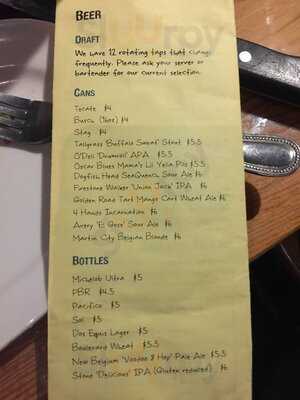 BEER
DRAFT
We have 12 rotating taps that change
frequently. Please ask your server or
bartender for our current selection.
CANS
Tecate $4
Busch (16oz) $4
Stag $4
Tallgrass Buffalo Sweat Stout $5.5
O'Dell 'Drumroll' APA $5.5
Oscar Blues Mama's Lil Yella Pils $5.5
Dogfish Head SeaQuench Sour Ale $6
Firestone Walker 'Union Jack' IPA $6
Golden Road Tart Mango Cart Wheat Ale $6
4 Hands Incarnation $6
Avery 'El Gose' Sour Ale $6
Martin City Belgian Blonde $6
BOTTLES
Michelob Ultra $5
PBR $4.5
Pacifico $5
Sol $5
Dos Equis Lager $5
Boulevard Wheat $5.5
New Belgium 'Voodoo 8 Hop' Pale Ale $5.5
Stone 'Delicious' IPA (Gluten reduced) $6